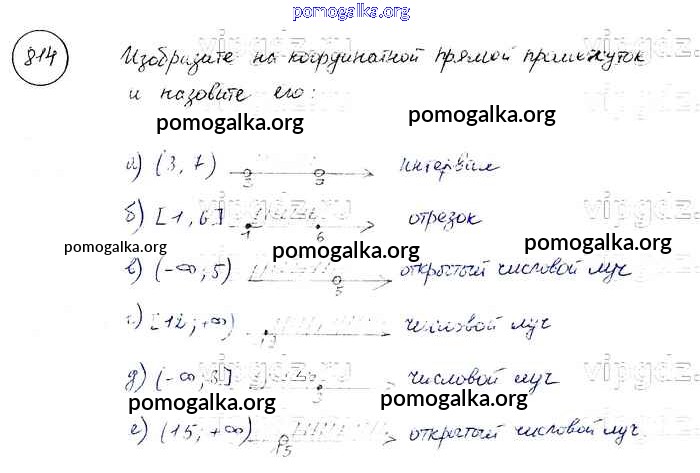 pomogalka.org
814 Изобразите на координатной прямой промежуток
и назовите его:
pomogalka.org pomogalka.org
а) (3, 7) 3 интервал
vipgdz.ru
б) [1, 6] 1 6 отрезок
pomogalka.org pomogalka.org pomogalka.org
в) (-∞; 5) 5 открытый числовой луч
г) [12; +∞) 12 числовой луч
vipgdz.ru
д) (-∞; 3] 3 числовой луч
pomogalka.org pomogalka.org
е) (15; +∞) 15 открытый числовой луч